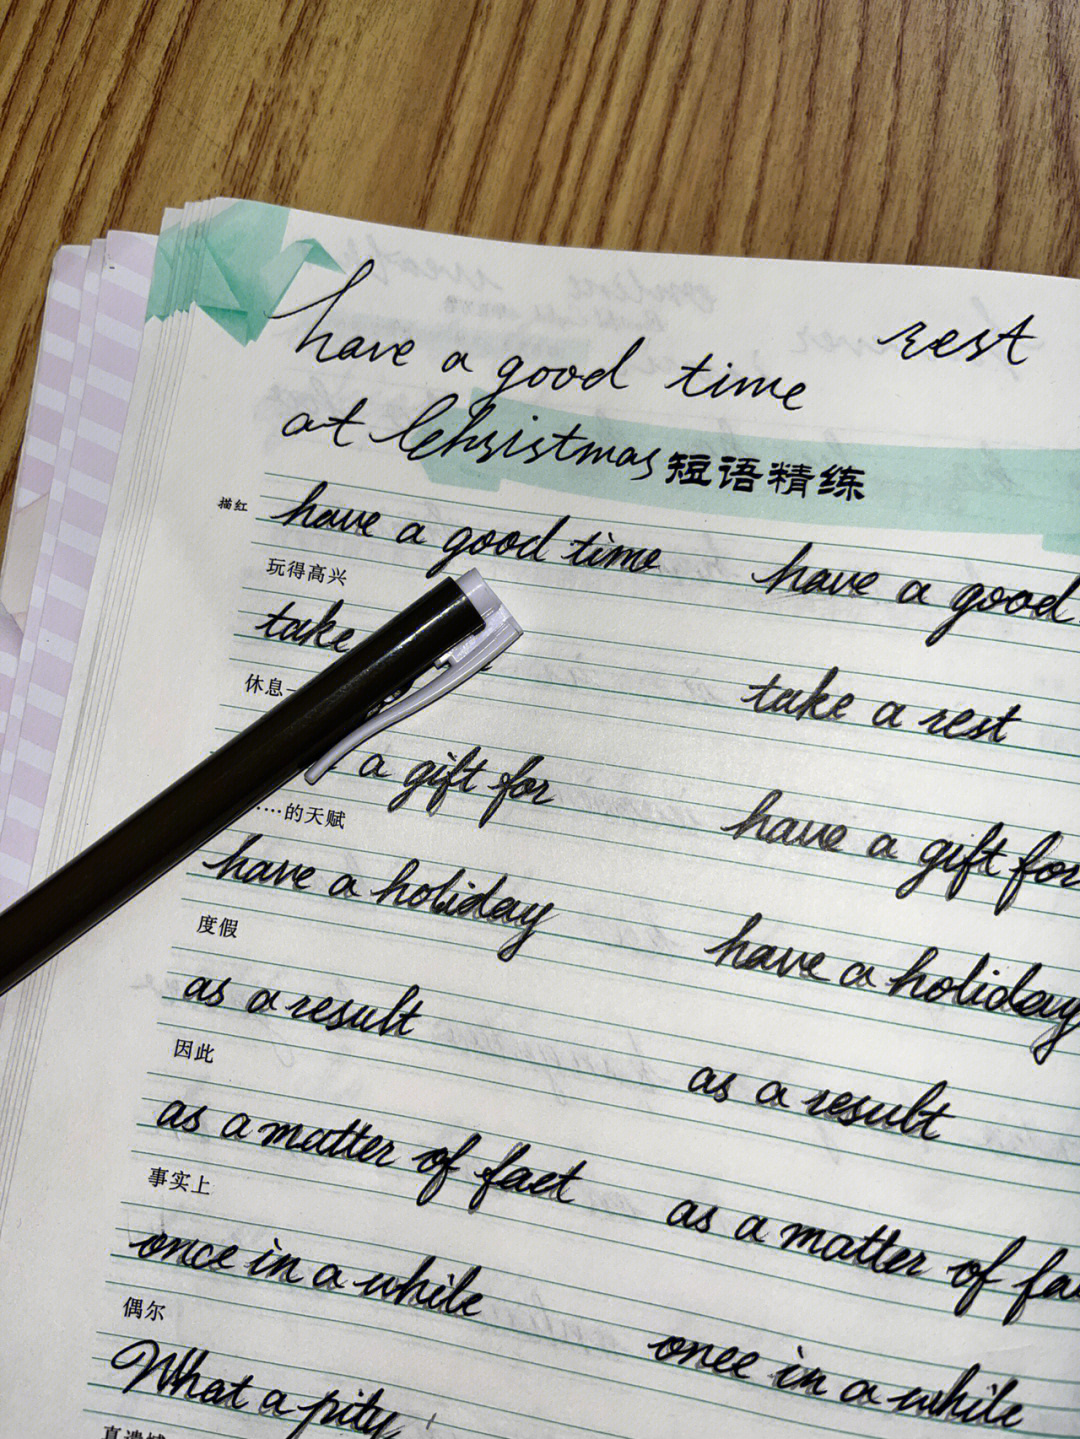 have a good time rest
at Christmas 短语精练
描红 have a good time have a good
玩得高兴
take take a rest
休息一
a gift for have a gift for
……的天赋
have a holiday have a holiday
度假
as a result as a result
因此
as a matter of fact as a matter of fa
事实上
once in a while once in a while
偶尔
What a pity
真遗憾